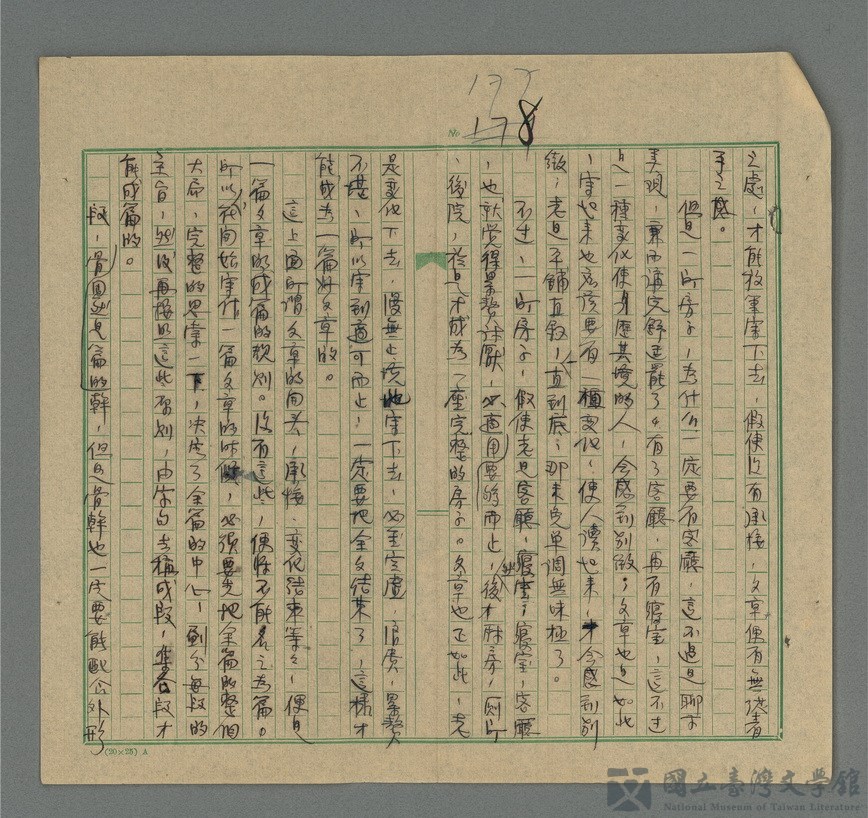 177
No 178
之處，才能放筆寫下去，假使沒有承接，文章便有無從着
手之感。
但是一所房子，為什么一定要有客廳，這不過是聊示
美观，兼而講究舒适罷了。有了客廳，再有寢室，這不过
是一種变化使身歷其境的人，会感到別緻；文章也是如此
，寫起来也应該要有一種变化，使人讀起来，才会感到別
緻；老是平鋪直敘，一直到底；那末完单調無味極了。
不过，一所房子，假使老是客廳，寢室；寢室，客廳
，也就觉得累贅讨厭，必適用要够而止，後才厨房，厕所
，後院，於是才成為一座完整的房子。文章也正如此，老
是变化下去，漫無止境地寫下去，必至空虛，浪费，累贅
不堪，所以寫到適可而止，一定要把全文结束了，這樣才
能成為一篇好文章的。
這上面所謂文章的向头，承接，变化结束等々，便是
一篇文章的成篇的規則。沒有這些，便將不能名之為篇。
所以在開始寫作一篇文章的時候，必須要先把全篇的整個
大局，完整的思索一下，决定了全篇的中心，劃分每段的
主旨，然後再按照這些原則，由字句去構成段，集合段才
能成篇的。
段，骨固然是篇的幹，但是骨幹也一定要能配合外形
(20×25) A
國立臺灣文學館
National Museum of Taiwan Literature